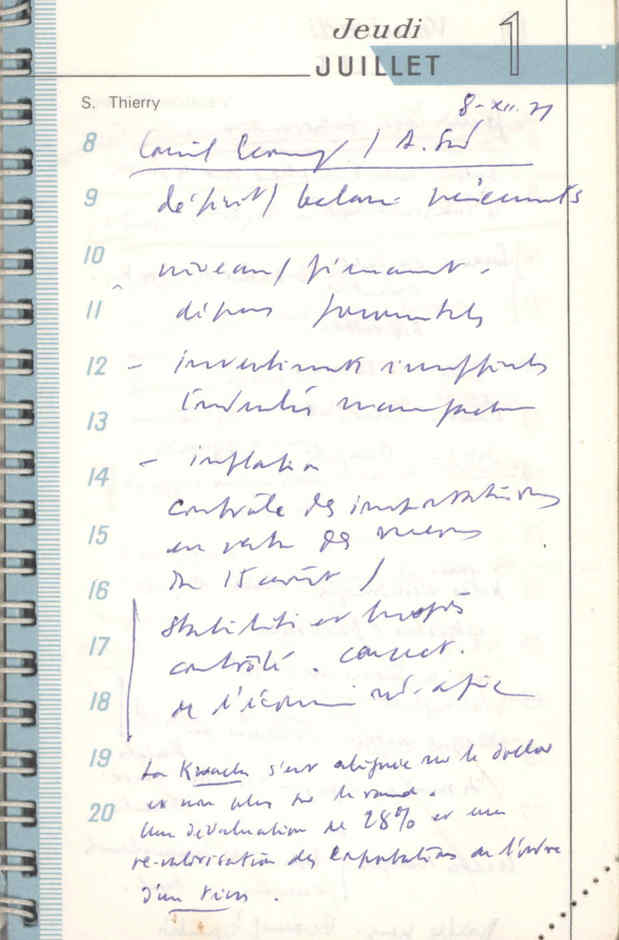 Jeudi 1
JUILLET
S. Thierry
8-XII.71
8 / A. Sud
9 déficit / balance paiements
10 niveau / financement.
11 dépenses
12 – investissements insuffisants
13 industries manufactur
14 – inflation
contrôle des importations
15 en vertu des mesures
16 du 15 août /
stabilité et progrès
17 contrôlé.
18 de l'économie sud-afric
19 La Kwacha s'est alignée sur le dollar
20 et non plus sur le rand.
Une dévaluation de 28% et une
re-valorisation des exportations de l'ordre
d'un tiers.